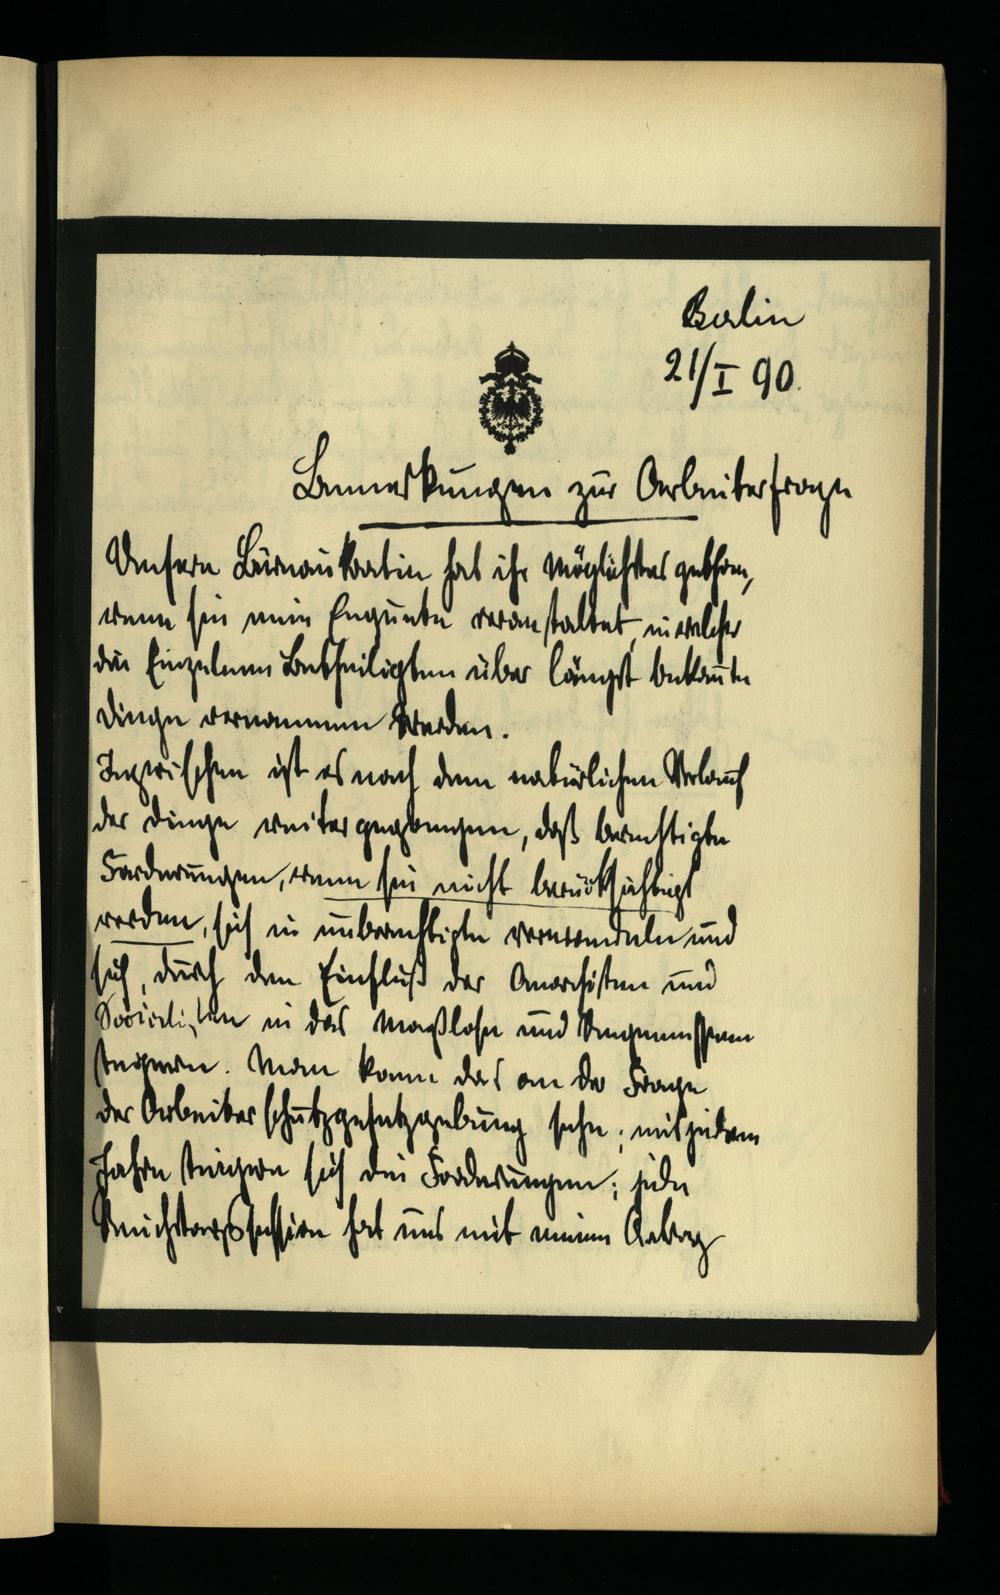 Berlin
21/I 90.
Bemerkungen zur Arbeiterfrage
Unsere Büreaukratie hat ihr Möglichstes gethan,
wenn sie eine Enquete veranstaltet, in welcher
die Einzelnen Betheiligten über längst bekannte
Dinge vernommen werden.
Inzwischen ist es nach dem natürlichen Verlauf
der Dinge weitergegangen, daß berechtigte
Forderungen, wenn sie nicht berücksichtigt
werden, sich in unberechtigte verwandeln und
sich, durch den Einfluß der Anarchisten und
Socialisten in das Maßlose und Ungemessene
steigern. Man kann das an der Frage
der Arbeiterschutzgesetzgebung sehn; mit jedem
Jahre steigern sich die Forderungen; jede
Reichstagssession hat uns mit einem Antrag